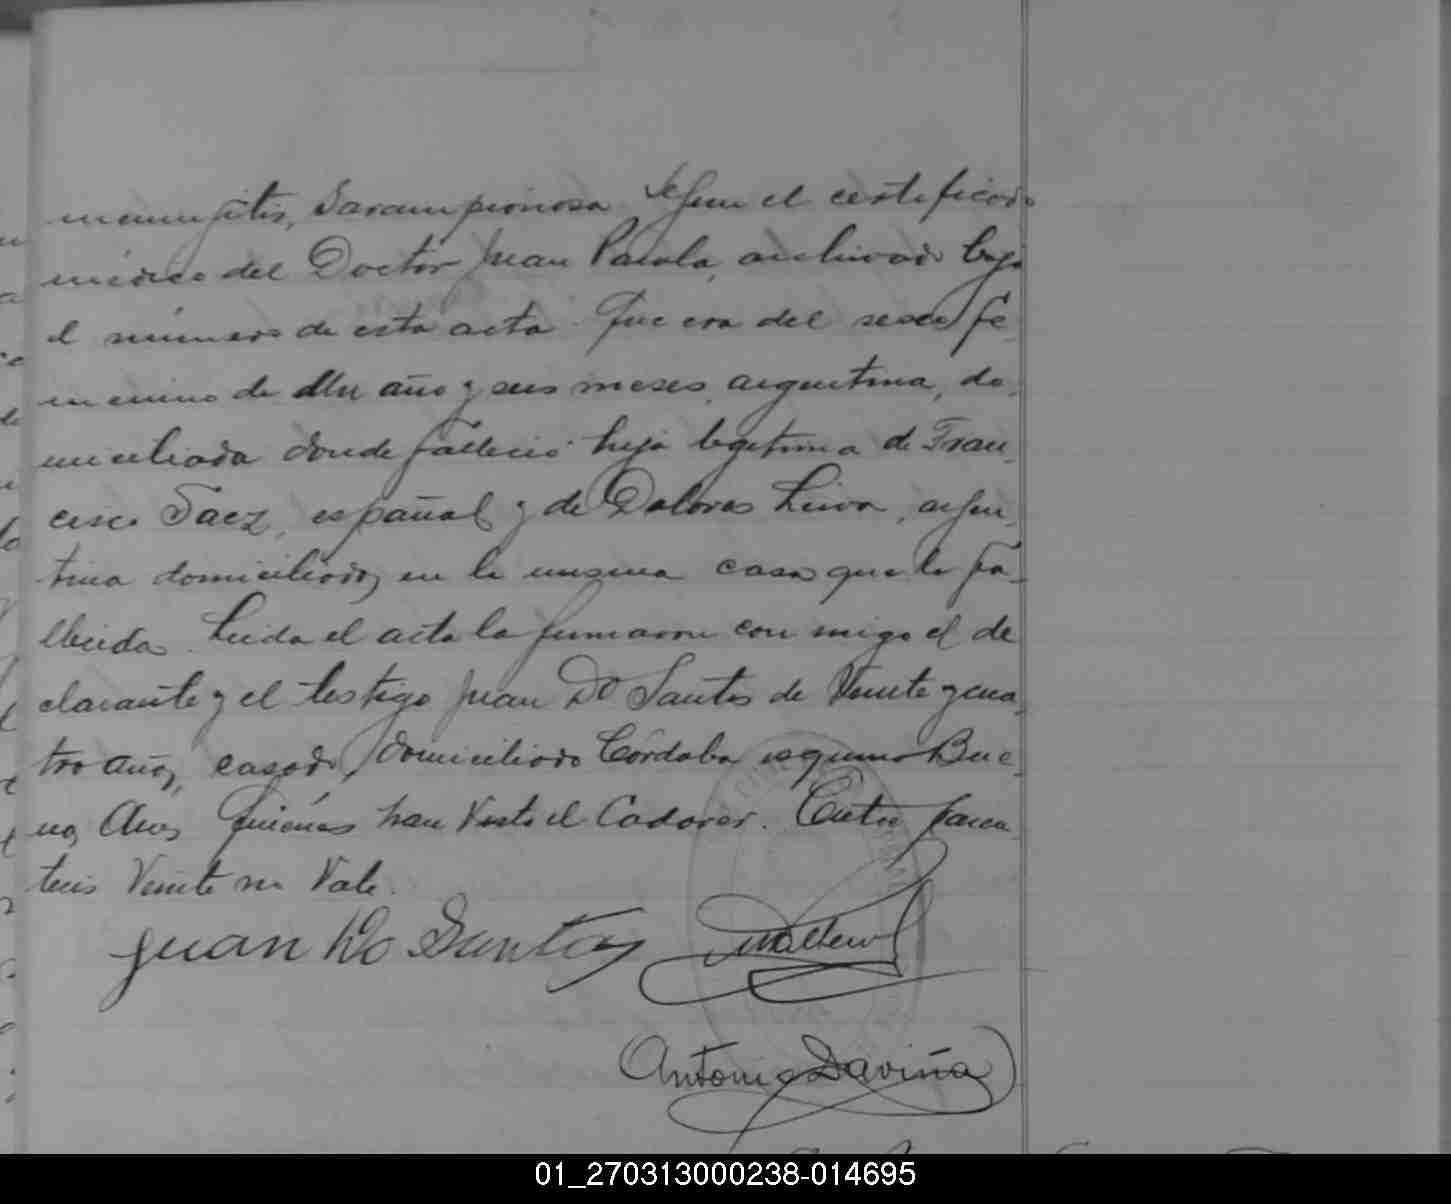 meningitis, Sarampionosa Segun el certificado
médico del Doctor Juan Parola, archivado bajo
el número de esta acta. Que era del sexo fe-
menino de Un año y seis meses, argentina, do-
miciliada donde falleció hija legitima de Fran-
cisco Saez, español y de Dolores Leiva, argen-
tina domiciliados en la misma casa que la fa-
llecida. Leida el acta la firmaron con migo el de
clarante y el testigo Juan Do Santos de Veinte y cua-
tro años, casado, domiciliado Córdoba esquina Bue-
nos Aires, quiénes han Visto el Cadaver. Entre paren
tesis Veinte no Vale.
Juan Do Santos
Antonio Daviña
01_270313000238-014695